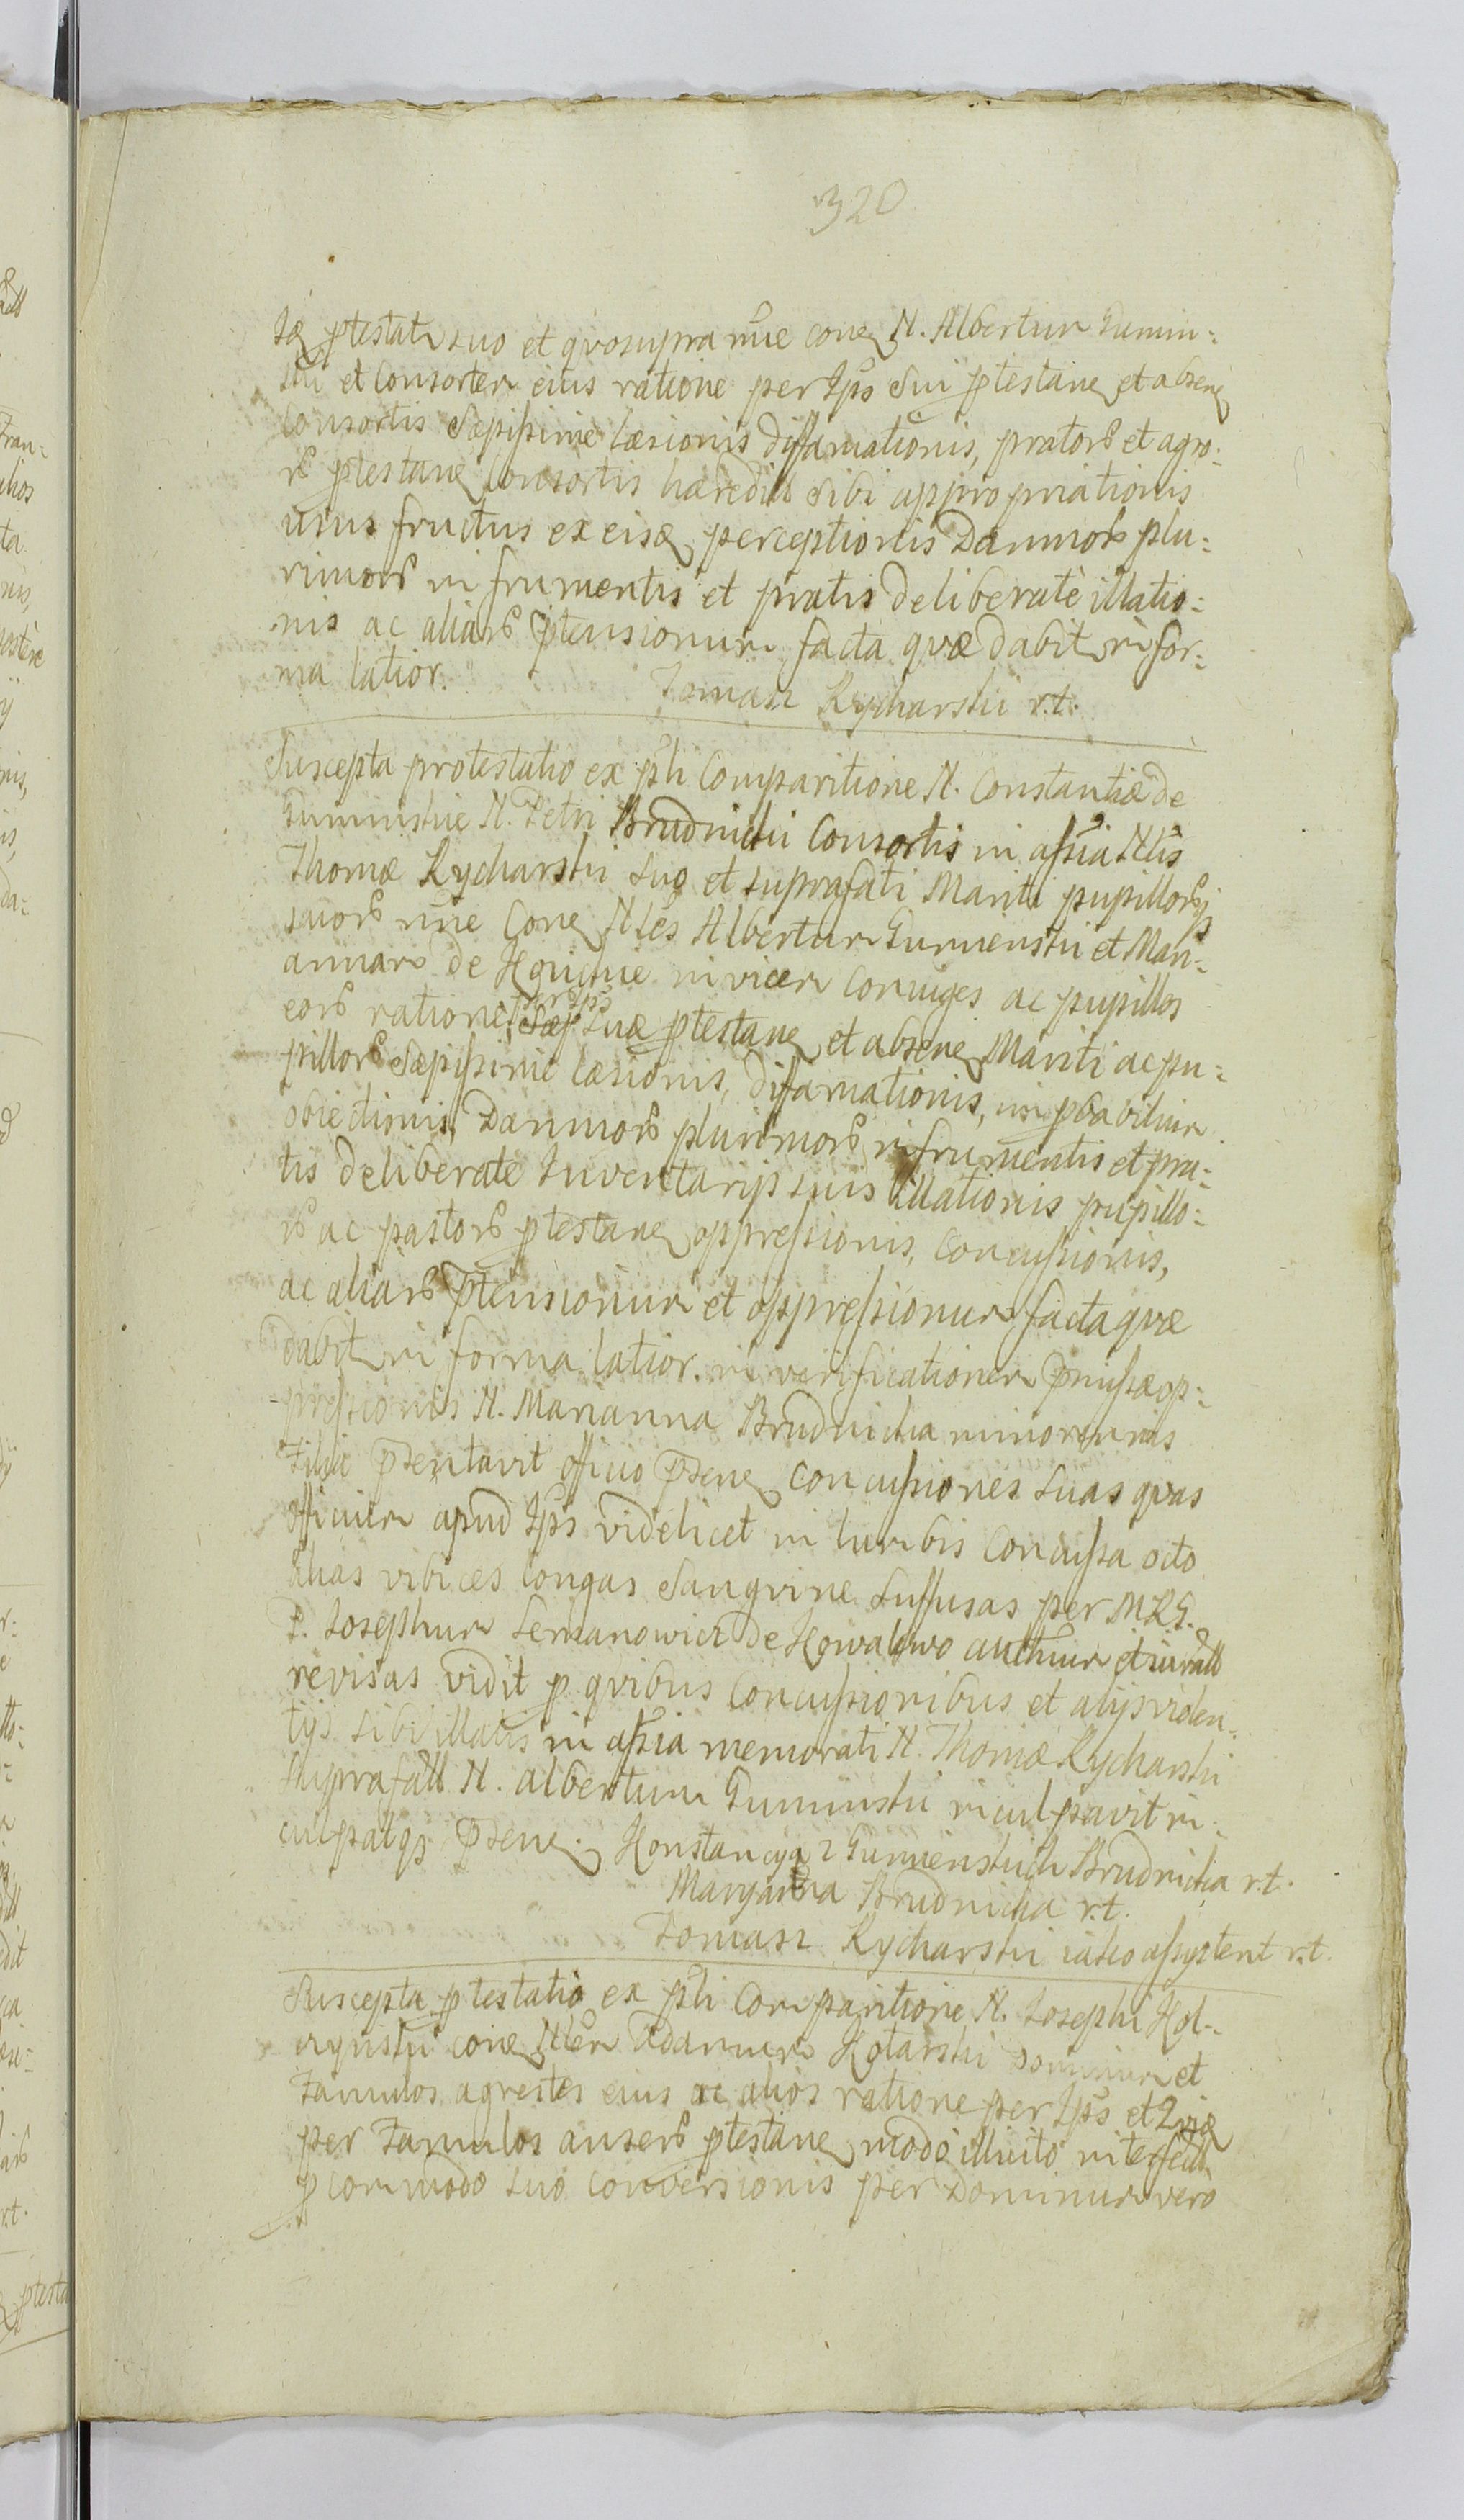 320
Id ptestatr suo et quosupra nne cone N. Albertum Gumin:
ski et Consortem eius ratione per Ips Sui ptestane et absen
Consortis Sæpissime læsionis diffamationis, pratorb et agro:
rb ptestane Consortis hæredit Sibi appropriationis
usus fructus ex eisd perceptionis Damnorb plu:
rimorb in frumentis et pratis deliberatè illatio:
nis ac aliarb ptensionum facta quæ dabitr in for:
ma latior.
Tomasz Rycharski r.t.
Suscepta protestatio ex psti Comparitione N. Constantiæ de
Guminskie N. Petri Brudnicki Consortis in assia Nlis
Thomæ Rycharski Suo et suprafati Mariti pupillorbq
suorb nne Cone Nles Albertum Gumenski et Mari:
annam de Konickie invicem Coniuges ac pupillos
eorb ratione per Ips Suæ ptestane et absene Mariti ac pu:
pillorb Sæpissime læsionis, diffamationis, impbabilium
obiectionis, Damnorb plurimorb in frumentis et pra:
tis deliberate Inventarijs suis illationis pupillo:
rb ac pastorb ptestane oppressionis, Concussionis,
ac aliarb ptensionum et oppressionum facta quæ
dabitr in forma latior. in verificationem pmissæ op:
pressionis N. Marianna Brudnicka minorennis
Filia psentavit officio psene concussiones suas quas
officium apud Ips videlicet in lumbis Concussa octo
alias vibices longas Sangvine Suffusas per MRG.
P. Josephum Lemanowicz de Kowalewo authum et iuratt
revisas vidit p quibus Concussionibus et alijs violen:
tijs sibi illatis in assia memorati N. Thomæ Rycharski
Suprafatt N. albertum Guminski inculpavit in:
culpatqz psene. Konstancya z Gumienskich Brudnicka r.t.
Maryanna Brudnicka r.t.
Tomasz Rycharski iako assystent r.t.
Suscepta ptestatio ex psti Comparitione N. Josephi Kol:
cynski cone Nlem Adamum Kotarski Dominum et
Famulos agrestes eius ac alios ratione per Ips et
per Famulos anserb ptestane modo illicito interfectr
p commodo suo Conversionis per Dominum vero